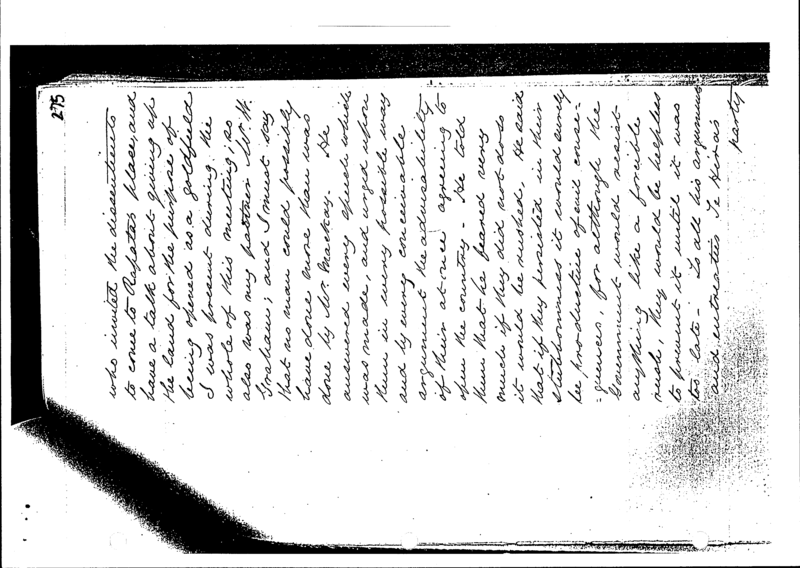 275
who invited the dissentients
to come to Rapata's place, and
have a talk about giving up
the land for the purpose of
being opened as a goldfield
I was present during the
whole of this meeting, as
also was my partner Mr. W.
Graham; and I must say
that no man could possibly
have done more than was
done by Mr. Mackay. He
answered every speech which
was made, and urged upon
them in every possible way
and by every conceivable
argument the advisability
of their at once agreeing to
open the country - He told
them that he feared very
much if they did not do so
it would be rushed. He said
that if they persisted in their
stubbornness it would surely
be productive of evil conse-
-quences, for although the
Government would resist
anything like a forcible
rush, they would be helpless
to prevent it until it was
too late - To all his arguments
and entreaties Te Hira's
party